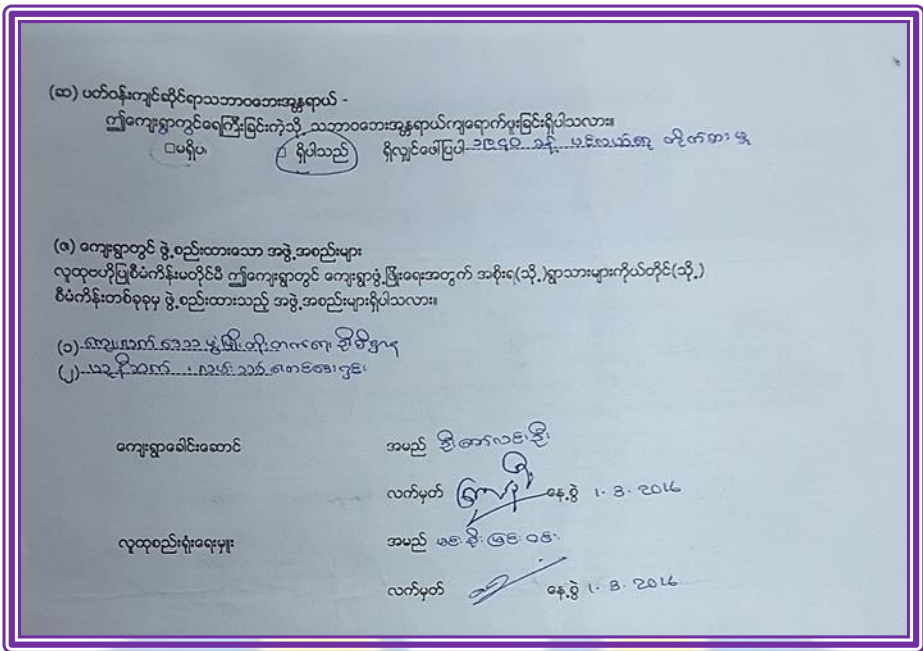 (ဆ) ပတ်ဝန်းကျင်ဆိုင်ရာသဘာဝဘေးအန္တရာယ် -
ဤကျေးရွာကွင်ရေကြီးခြင်းကဲ့သို့ သဘာဝဘေးအန္တရာယ်ကျရောက်ဖူးခြင်းရှိပါသလား။
□မရှိပ □ ရှိပါသည် ရှိလျှင်ဖေါ်ပြပါ ၁၉၄၀ ခန့် တိုက်စားမှု
(ဇ) ကျေးရွာတွင် ဖွဲ့စည်းထားသော အဖွဲ့အစည်းများ
လူထုဗဟိုပြုစီမံကိန်းမတိုင်မီ ဤကျေးရွာတွင် ကျေးရွာဖွံ့ဖြိုးရေးအတွက် အစိုးရ(သို့)ရွာသားများကိုယ်တိုင်(သို့)
စီမံကိန်းတစ်ခုခုမှ ဖွဲ့စည်းထားသည့် အဖွဲ့အစည်းများရှိပါသလား။
(၁) ကျေးလက်ဒေသ ဖွံ့ဖြိုးတိုးတက်ရေး ဦးစီးဌာန
(၂)
ကျေးရွာခေါင်းဆောင် အမည် ဦး
လက်မှတ် နေ့စွဲ 1. 3. 2016
လူထုစည်းရုံးရေးမှူး အမည်
လက်မှတ် နေ့စွဲ 1. 3. 2016